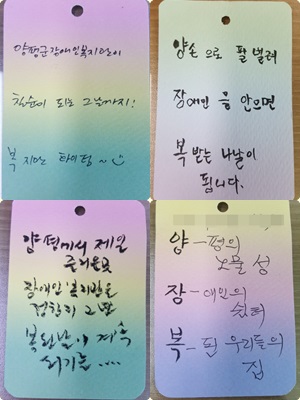 양평군장애인복지관이
칠순이 되는 그날까지!
복 지관 화이팅~
양손 으로 팔 벌려
장애인 을 안으면
복 받는 나날이
됩니다.
양평에서 제일
즐거운곳
장애인 복지관을
복된날이 계속
되기를....
양-평의
노을 성
장-애인의
쉼터
복-된 우리들의
집